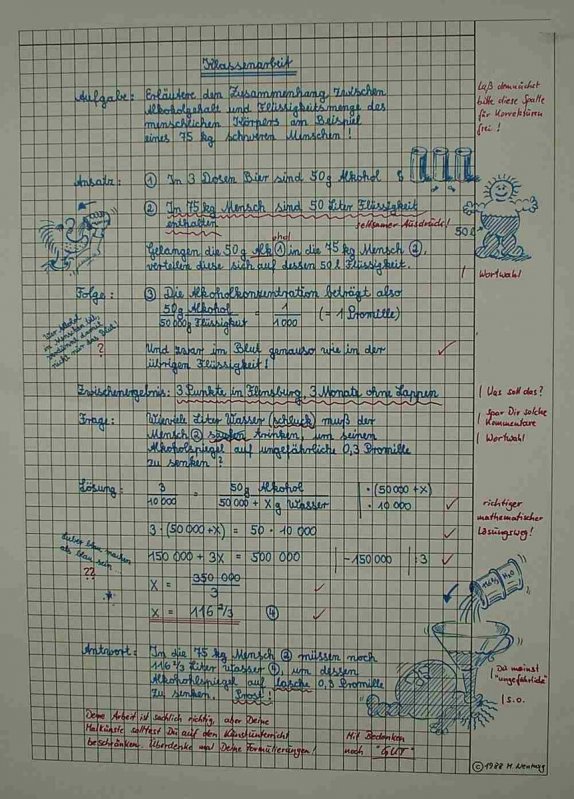 Klassenarbeit
Aufgabe: Erläutere den Zusammenhang zwischen
Alkoholgehalt und Flüssigkeitsmenge des
menschlichen Körpers am Beispiel
eines 75 kg schweren Menschen!
Laß demnächst
bitte diese Spalte
für Korrekturen
frei!
Ansatz: ① In 3 Dosen Bier sind 50g Alkohol
② In 75 kg Mensch sind 50 Liter Flüssigkeit
enthalten
seltsamer Ausdruck!
50 l
Gelangen die 50g Alk ① in die 75 kg Mensch ②,
ohol
verteilen diese sich auf dessen 50 l Flüssigkeit.
Wortwahl
Folge: ③ Die Alkoholkonzentration beträgt also
50g Alkohol / 50 000g Flüssigkeit = 1 / 1000 (= 1 Promille)
?
Und zwar im Blut genauso wie in der
übrigen Flüssigkeit!
Zwischenergebnis: 3 Punkte in Flensburg, 3 Monate ohne Lappen
Was soll das?
Frage: Wieviele Liter Wasser (schluck) muß der
Mensch ② saufen trinken, um seinen
Alkoholspiegel auf ungefährliche 0,3 Promille
zu senken?
Spar Dir solche
Kommentare
Wortwahl
Lösung: 3 / 10 000 = 50g Alkohol / 50 000 + X g Wasser | · (50 000 + X) · 10 000
3 · (50 000 + X) = 50 · 10 000
150 000 + 3X = 500 000 | -150 000 | : 3
X = 350 000 / 3
X = 116 2/3 ④
richtiger
mathematischer
Lösungsweg!
Lieber blau machen
als blau sein...
??
H2O
Antwort: In die 75 kg Mensch ② müssen noch
116 2/3 Liter Wasser ④, um dessen
Alkohohlspiegel auf lasche 0,3 Promille
zu senken. Prost!
Du meinst
"ungefährliche"
s.o.
Deine Arbeit ist sachlich richtig, aber Deine
Malkünste solltest Du auf den Kunstunterricht
beschränken. Überdenke mal Deine Formulierungen!
Mit Bedenken
noch "GUT"
© 1988 M.